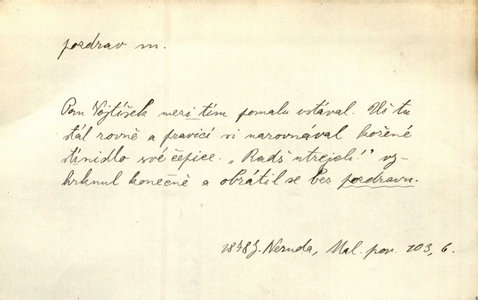 pozdrav m.
Pan Vojtíšek mezi tím pomalu vstával. Už tu
stál rovně a pravicí si narovnával kožené
stínidlo své čepice. „Radš utrejch!" vy-
krknul konečně a obrátil se bez pozdravu.
1878 J. Neruda, Mal. pov. 103, 6.